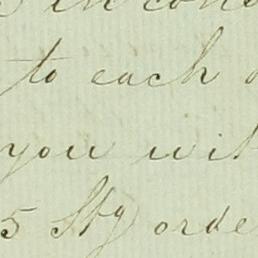 in con
to each
you wil
5 Stg orde